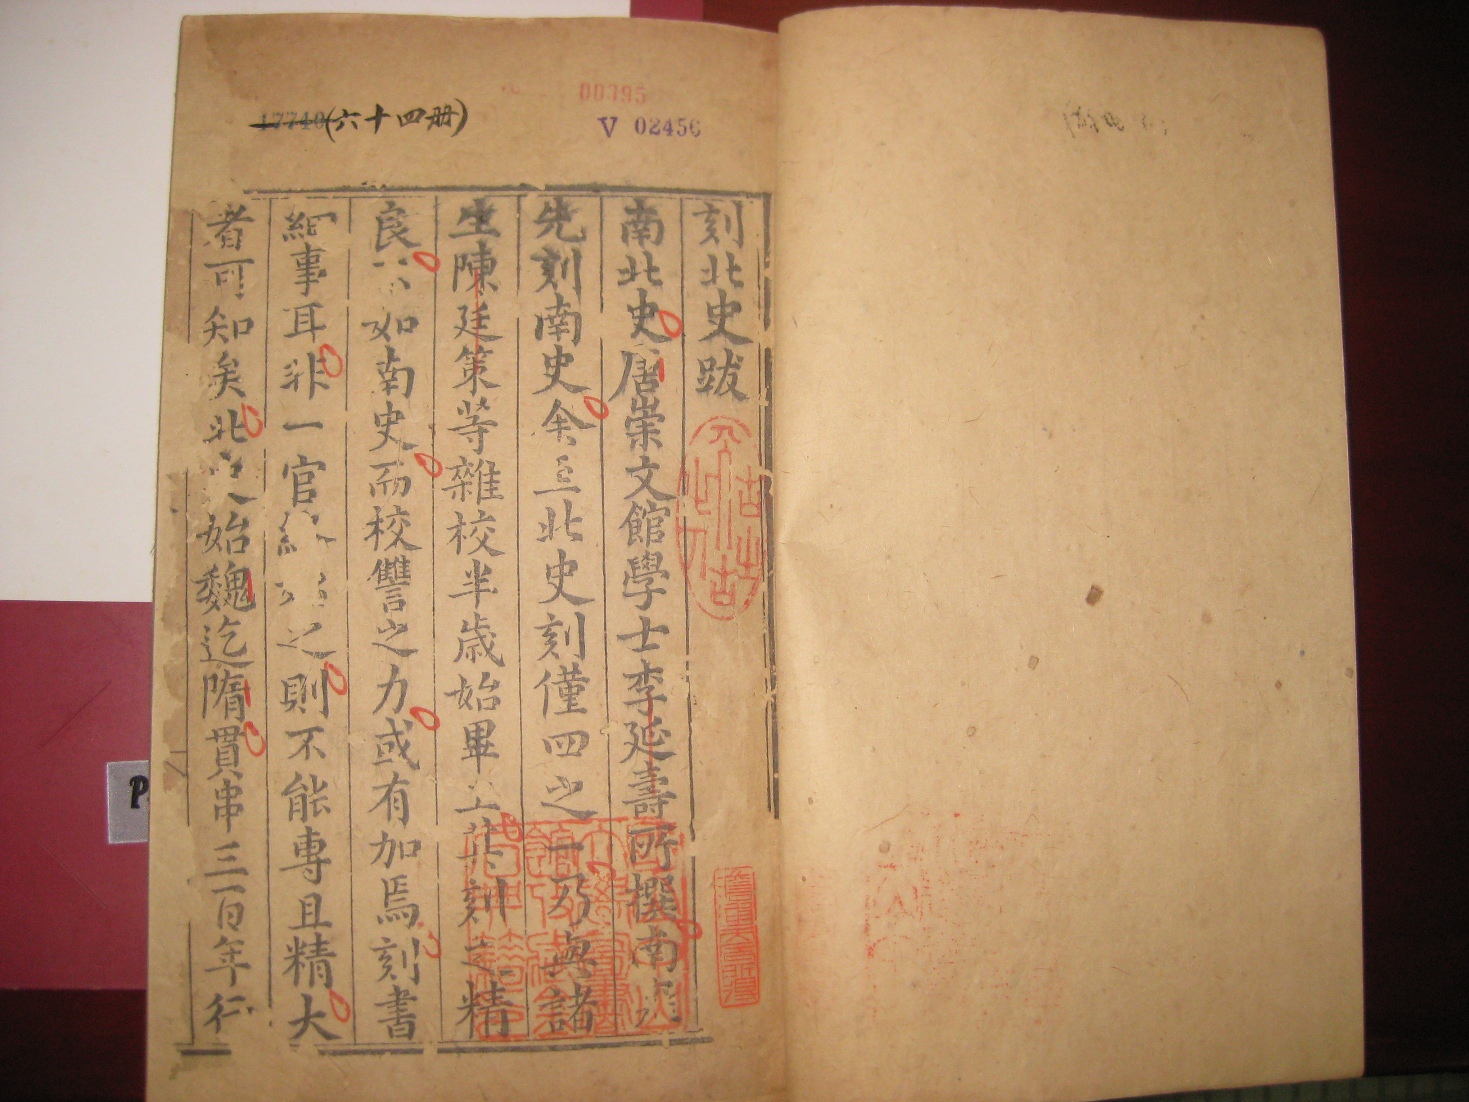 17740(六十四册)
00395
V 02456
刻北史跋
南北史唐崇文館學士李延壽所撰南史
先刻南史余亟北史刻僅四之一乃與諸
生陳廷策等雜校半歲始畢其刻之精
良如南史而校讐之力或有加焉刻書
細事耳非一官之則不能專且精大
者可知矣北史始魏迄隋貫串三百年行